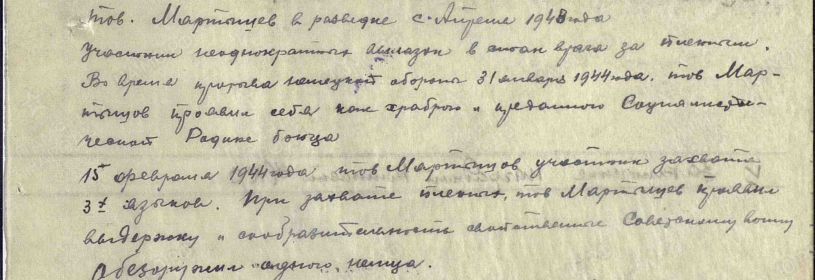 тов. Мартынцев в разведке с Апреля 1943 года
участник неоднократных вылазок в стан врага за пленным.
Во время прорыва немецкой обороны 31 января 1944 года. тов Мар-
тынцов проявил себя как храброго и преданного Социалисти-
ческой Родине бойца
15 февраля 1944 года тов Мартынцов участник захвата
3х языков. При захвате пленных, тов Мартынцев проявил
выдержку и сообразительность свойственные Советскому воину
Обезоружил одного немца.